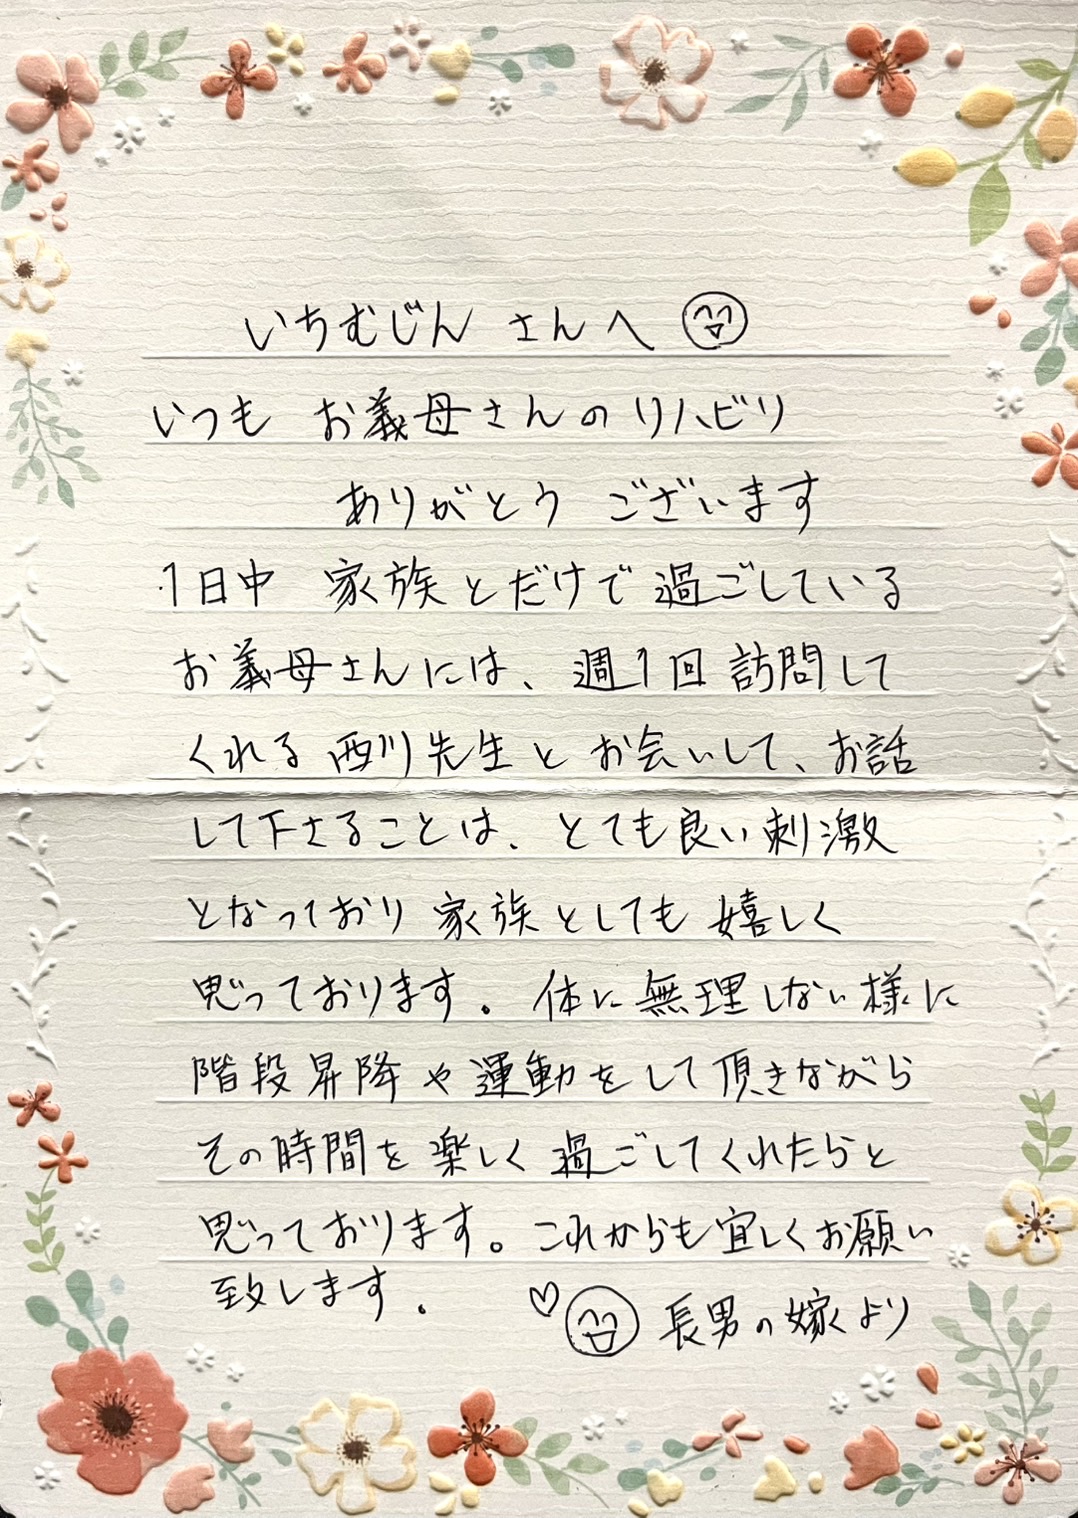 いちむじん さんへ
いつも お義母さんのリハビリ
ありがとう ございます
1日中 家族とだけで過ごしている
お義母さんには、週1回訪問して
くれる西川先生とお会いして、お話
して下さることは、とても良い刺激
となっており家族としても嬉しく
思っております。体に無理しない様に
階段昇降や運動をして頂きながら
その時間を楽しく過ごしてくれたらと
思っております。これからも宜しくお願い
致します。 ♡ 長男の嫁より